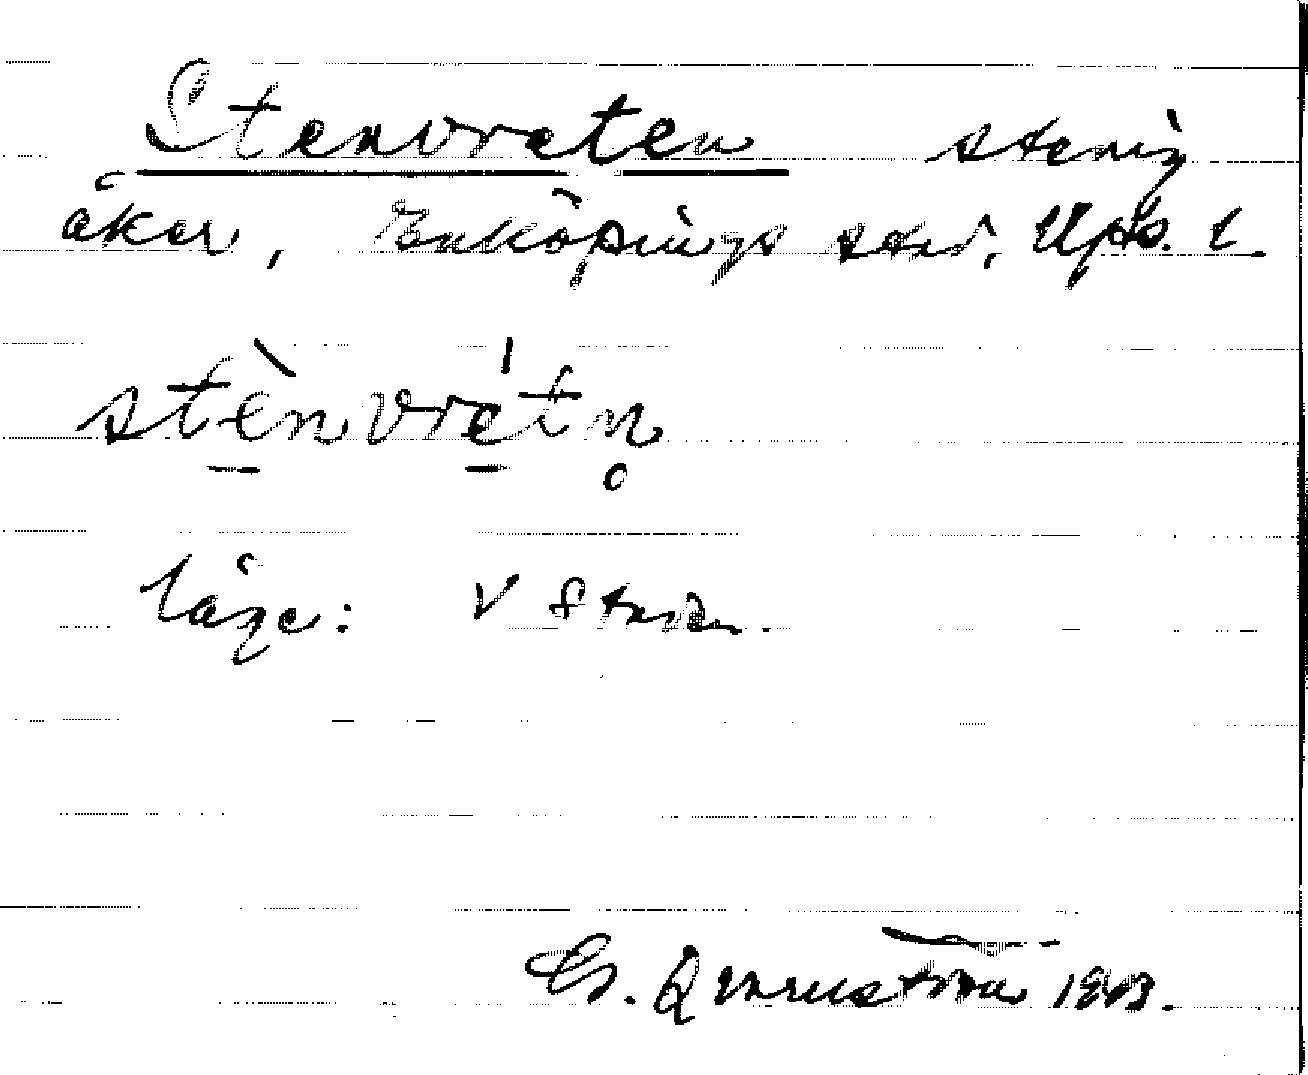 Stenvreten stenig
åker, Enköpings stad, Ups. l.
stènvrétn̥
läge: V staden.
G. Qvarnström 1943.